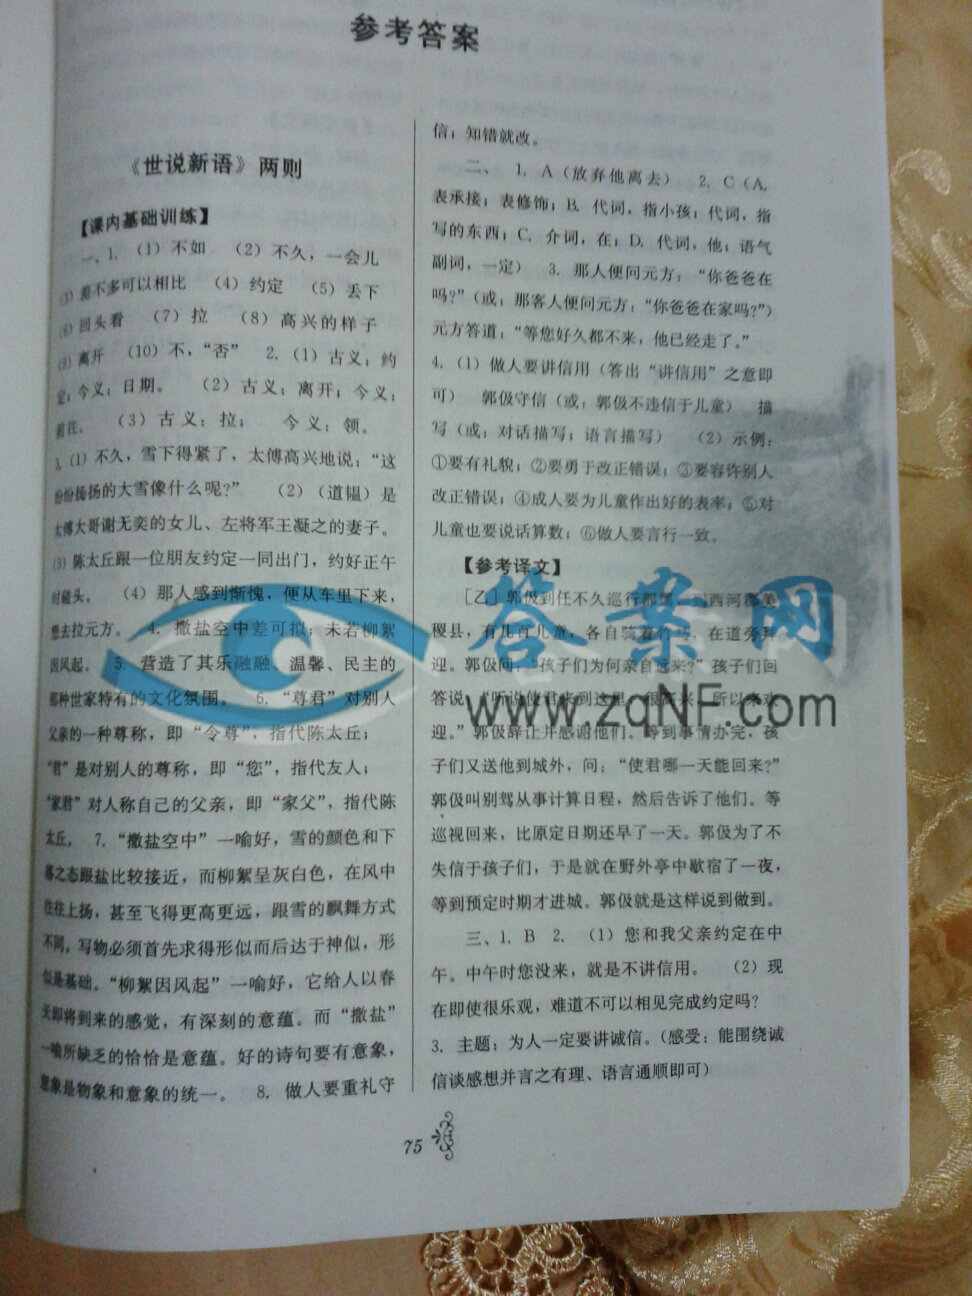 参考答案
《世说新语》两则
【课内基础训练】
一、1. （1）不如 （2）不久，一会儿
（3）差不多可以相比 （4）约定 （5）丢下
（6）回头看 （7）拉 （8）高兴的样子
（9）离开 （10）不，“否” 2.（1）古义：约
定；今义：日期。 （2）古义：离开；今义：
前往。 （3）古义：拉； 今义：领。
3.（1）不久，雪下得紧了，太傅高兴地说：“这
纷纷扬扬的大雪像什么呢？” （2）（道韫）是
太傅大哥谢无奕的女儿、左将军王凝之的妻子。
（3）陈太丘跟一位朋友约定一同出门，约好正午
时碰头。 （4）那人感到惭愧，便从车里下来，
想去拉元方。 4. 撒盐空中差可拟；未若柳絮
因风起。 5. 营造了其乐融融、温馨、民主的
那种世家特有的文化氛围。 6. “尊君”对别人
父亲的一种尊称，即“令尊”，指代陈太丘；
“君”是对别人的尊称，即“您”，指代友人；
“家君”对人称自己的父亲，即“家父”，指代陈
太丘。 7. “撒盐空中”一喻好，雪的颜色和下
落之态跟盐比较接近，而柳絮呈灰白色，在风中
往往上扬，甚至飞得更高更远，跟雪的飘舞方式
不同。写物必须首先求得形似而后达于神似，形
似是基础。“柳絮因风起”一喻好，它给人以春
天即将到来的感觉，有深刻的意蕴。而“撒盐”
一喻所缺乏的恰恰是意蕴。好的诗句要有意象，
意象是物象和意象的统一。 8. 做人要重礼守
信；知错就改。
二、 1. A（放弃他离去） 2. C（A.
表承接；表修饰；B. 代词，指小孩；代词，指
写的东西；C. 介词，在；D. 代词，他；语气
副词，一定） 3. 那人便问元方：“你爸爸在
吗？”（或：那客人便问元方：“你爸爸在家吗？”）
元方答道：“等您好久都不来，他已经走了。”
4.（1）做人要讲信用（答出“讲信用”之意即
可） 郭伋守信（或：郭伋不违信于儿童） 描
写（或：对话描写；语言描写） （2）示例：
①要有礼貌；②要勇于改正错误；③要容许别人
改正错误；④成人要为儿童作出好的表率；⑤对
儿童也要说话算数；⑥做人要言行一致。
【参考译文】
［乙］郭伋到任不久巡行部属，到西河郡美
稷县，有几百儿童，各自骑着竹马，在道旁拜
迎。郭伋问：“孩子们为何亲自远来？”孩子们回
答说：“听说使君来到这里，很高兴，所以来欢
迎。”郭伋辞让并感谢他们。等到事情办完，孩
子们又送他到城外，问：“使君哪一天能回来？”
郭伋叫别驾从事计算日程，然后告诉了他们。等
巡视回来，比原定日期还早了一天。郭伋为了不
失信于孩子们，于是就在野外亭中歇宿了一夜，
等到预定时期才进城。郭伋就是这样说到做到。
三、1. B 2. （1）您和我父亲约定在中
午。中午时您没来，就是不讲信用。 （2）现
在即使很乐观，难道不可以相见完成约定吗？
3. 主题：为人一定要讲诚信。（感受：能围绕诚
信谈感想并言之有理、语言通顺即可）
75
答案网
www.zqNF.com